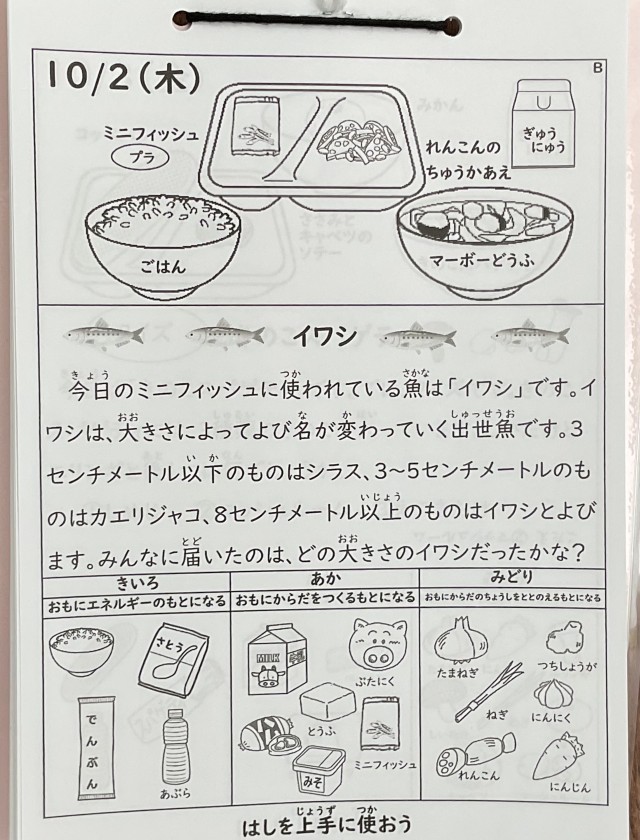 10/2(木)
B
ミニフィッシュ
プラ
れんこんの
ちゅうかあえ
ぎゅう
にゅう
ごはん
マーボーどうふ
イワシ
今日のミニフィッシュに使われている魚は「イワシ」です。イ
ワシは、大きさによってよび名が変わっていく出世魚です。3
センチメートル以下のものはシラス、3~5センチメートルのも
のはカエリジャコ、8センチメートル以上のものはイワシとよび
ます。みんなに届いたのは、どの大きさのイワシだったかな?
きいろ
おもにエネルギーのもとになる
さとう
でんぷん
あぶら
あか
おもにからだをつくるもとになる
MILK
ぶたにく
とうふ
ミニフィッシュ
みそ
みどり
おもにからだのちょうしをととのえるもとになる
たまねぎ
つちしょうが
ねぎ
にんにく
れんこん
にんじん
はしを上手に使おう